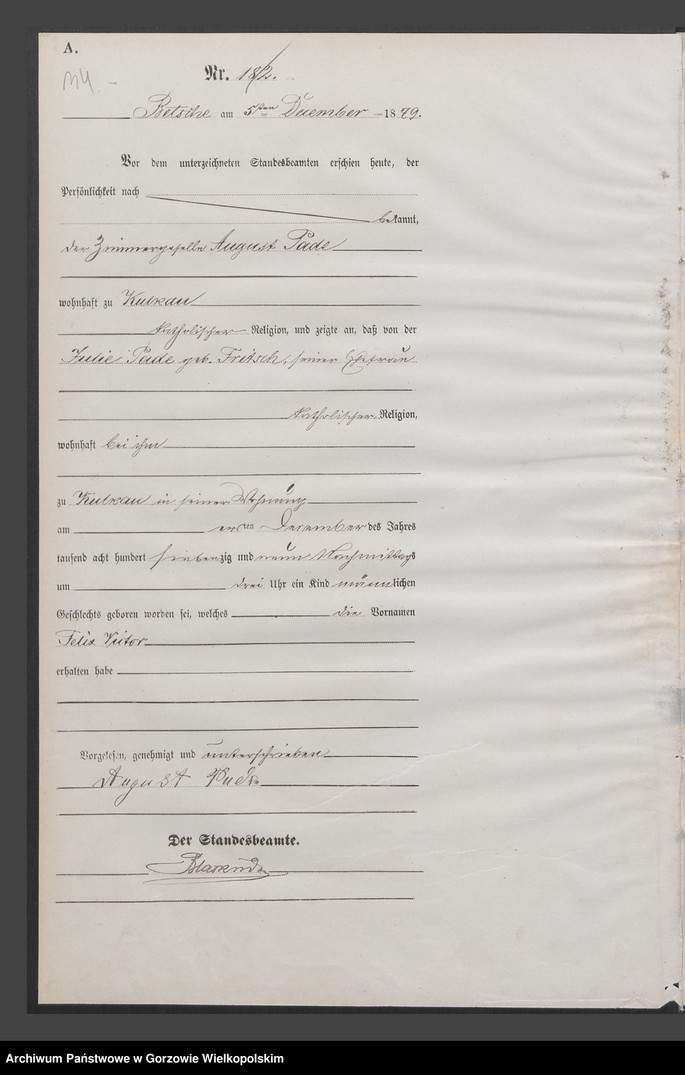 A.
Nr. 182.
114. –
Betsche am 5ten December 1879.
Vor dem unterzeichneten Standesbeamten erschien heute, der
Persönlichkeit nach
bekannt,
der Zimmergeselle August Pade
wohnhaft zu Kulkau
katholischer Religion, und zeigte an, daß von der
Julie Pade geb. Fritsch, seiner Ehefrau
katholischer Religion,
wohnhaft bei ihm
zu Kulkau in seiner Wohnung
am ersten December des Jahres
tausend acht hundert siebenzig und neun Nachmittags
um drei Uhr ein Kind männlichen
Geschlechts geboren worden sei, welches die Vornamen
Felix Victor
erhalten habe
Vorgelesen, genehmigt und unterschrieben
August Pade
Der Standesbeamte.
Archiwum Państwowe w Gorzowie Wielkopolskim